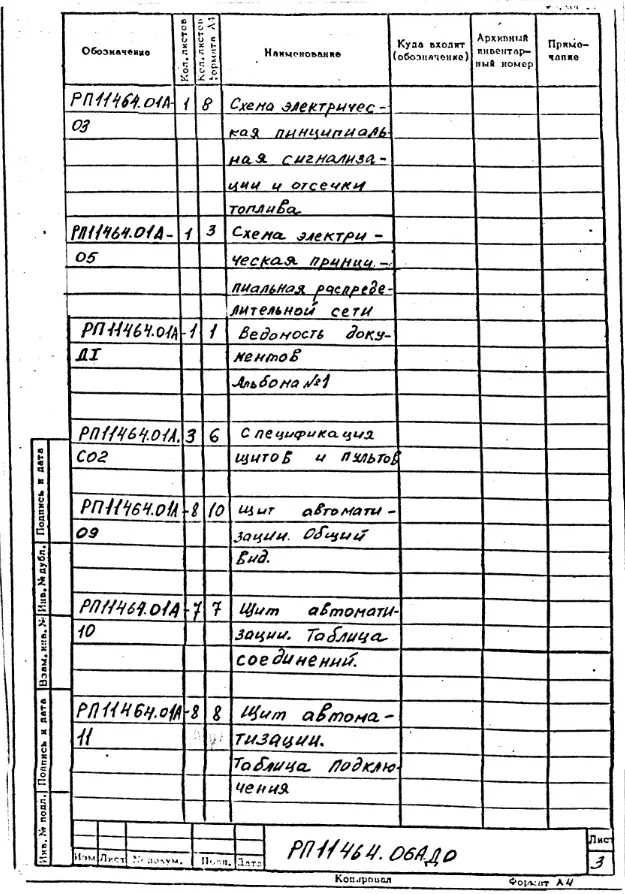 Обозначение
Кол. листов
Кол. листов формата А4
Наименование
Куда входит (обозначение)
Архивный инвентарный номер
Примечание
РП11464.01А- 1 8 Схема электричес-
03 кая пинципиаль
ная сигнализа-
ции и отсечки
топлива
РП11464.01А- 1 3 Схема электри-
05 ческая принци.-
пиальная распреде-
лительной сети
РП11464.01А- 1 1 Ведомость доку-
ДI ментов
Альбома №1
РП11464.01А. 3 6 Спецификация
СО2 щитов и пультов
РП11464.01А- 8 10 Щит автомати-
09 зации. Общий
вид.
РП11464.01А- 7 7 Щит автомати-
10 зации. Таблица
соединений.
РП11464.01А- 8 8 Щит автома-
11 тизации.
Таблица подклю-
чения
Инв. № подл.
Подпись и дата
Взам. инв. №
Инв. № дубл.
Подпись и дата
Изм Лист № докум. Подп. Дата
РП11464.06АДО
Лист
3
Копировал Формат А4